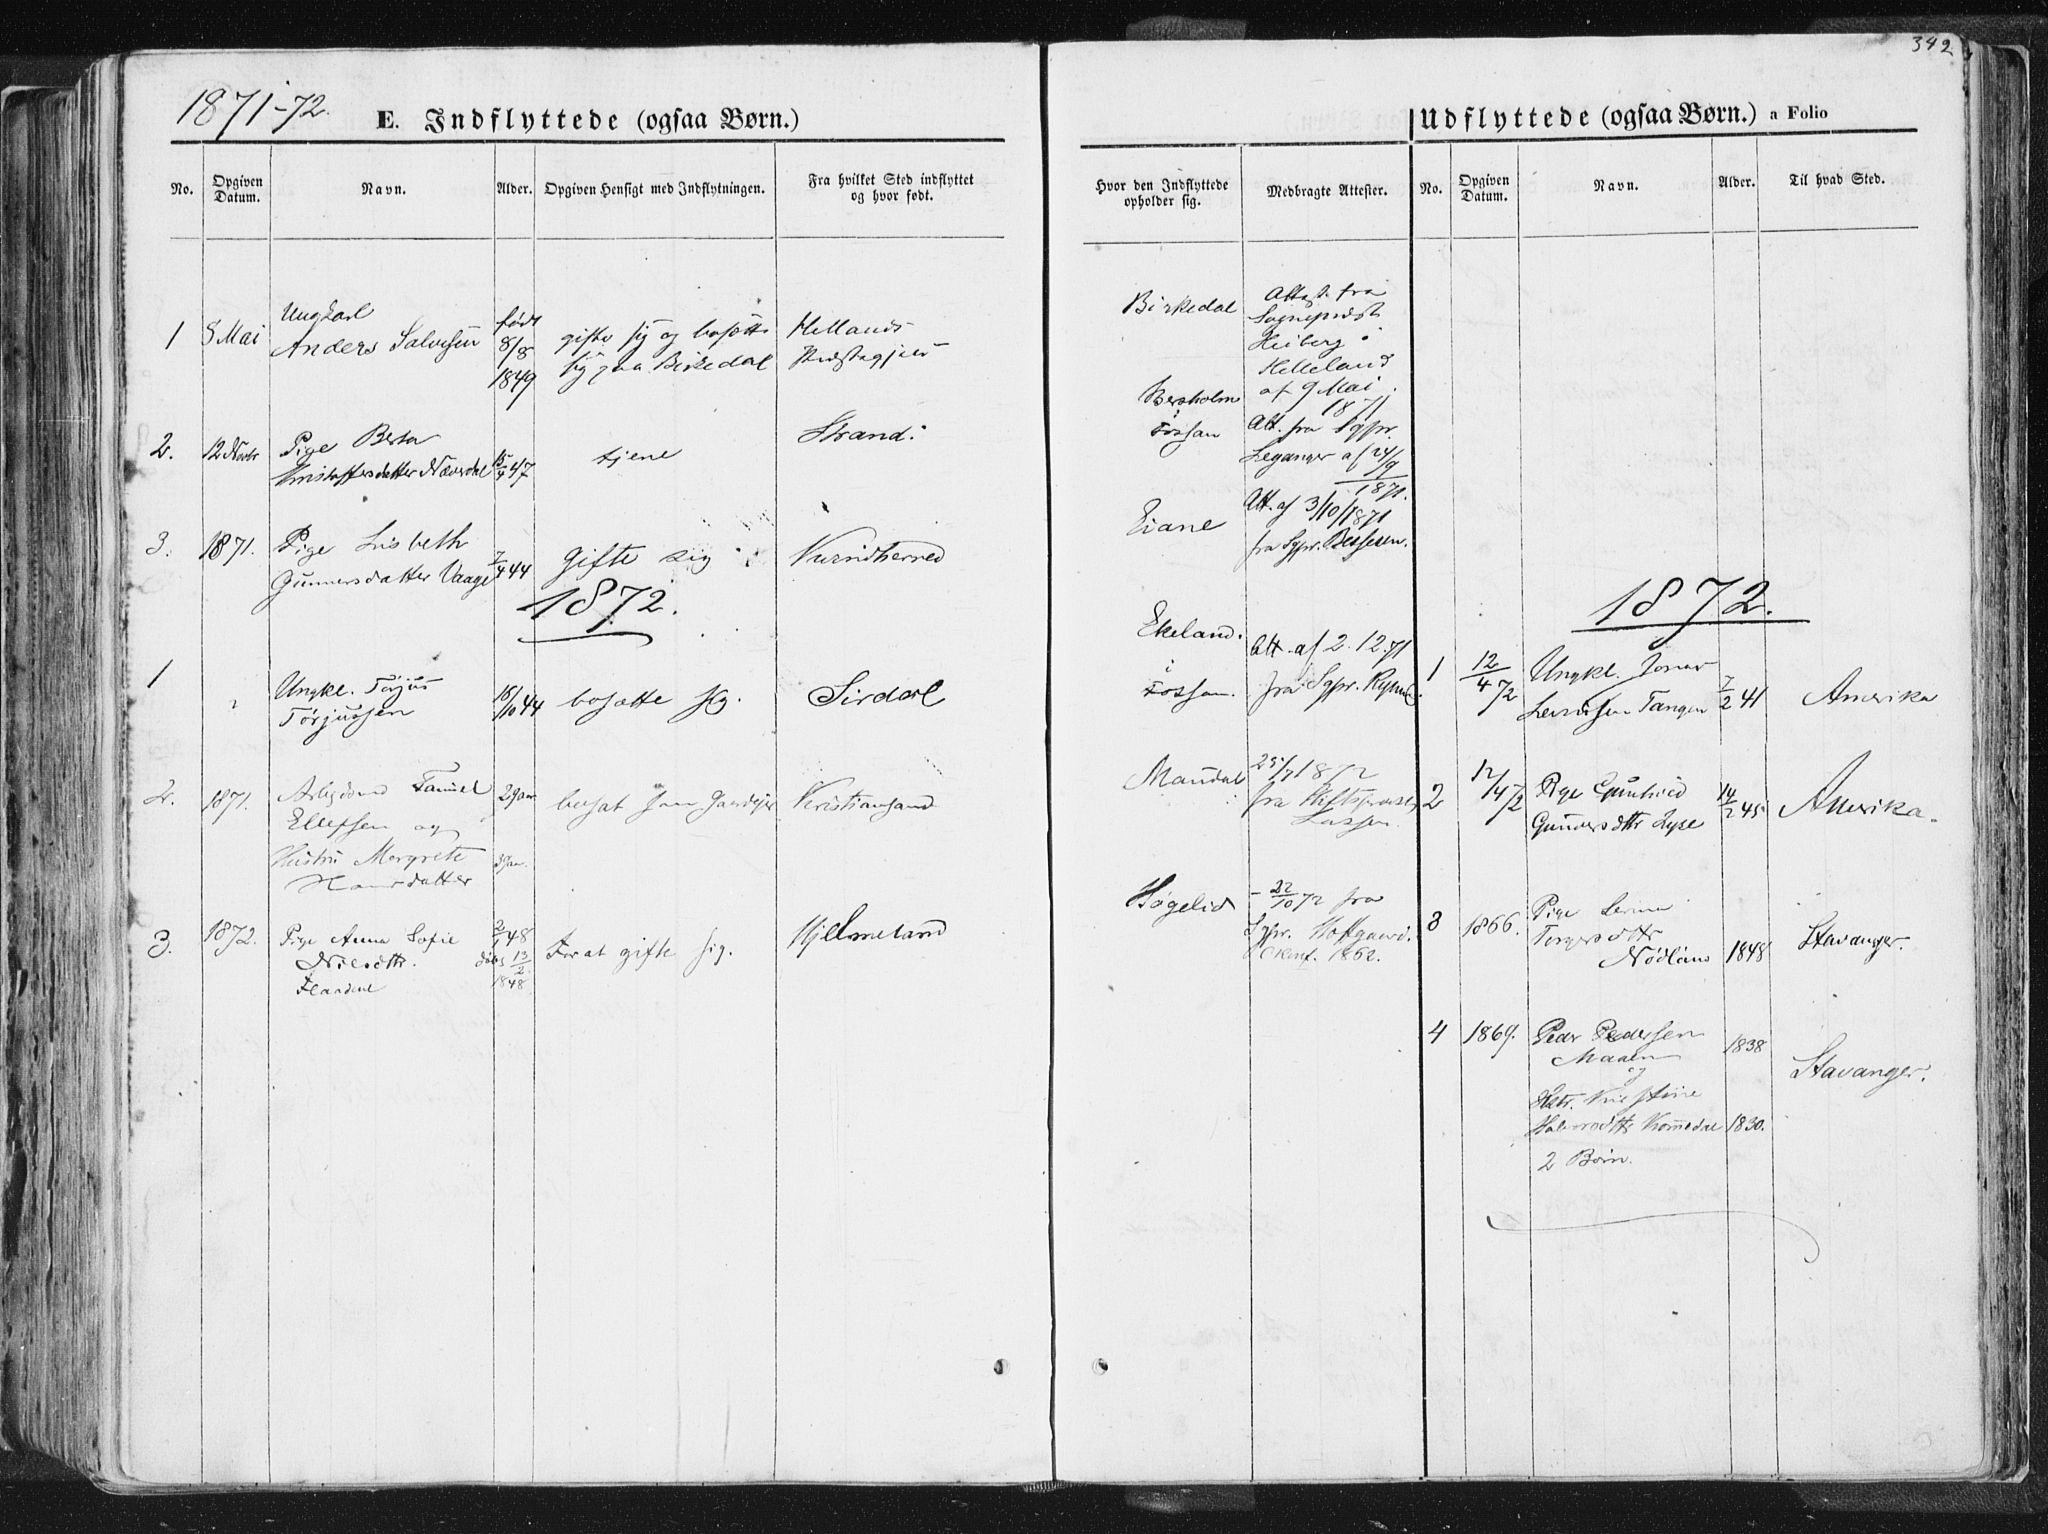 342
1871-72.
E. Indflyttede (ogsaa Børn.)
No.
Opgiven Datum.
Navn.
Alder.
Opgiven Hensigt med Indflytningen.
Fra hvilket Sted indflyttet
og hvor født.
1
8 Mai
Ungkarl
Anders Salvesen
født
8/8
1849
gifte sig og bosætte
sig paa Birkedal
Hellands
Præstegjeld
2.
12 Novbr
Pige Berta
Kristoffersdatter Næverdal
15/4 47
tjene
Strand.
3.
1871.
Pige Lisbeth
Gunnersdatter Vaage
7/4 44
Gifte sig
Kvindherred
1872.
1
Ungkl. Tørjus
Tørjussen
16/10 44
bosætte sig.
Sirdal
2.
1871.
Daniel
Ellefsen og
Hustru Margrete
Hansdatter
29 aar
bosat som
Kristiansand
3.
1872.
Pige Anna Sofie
Nilsdttr.
2/1 48
døbt 13/2
1848
For at gifte sig.
Hjelmeland
Udflyttede (ogsaa Børn.) a Folio
Hvor den Indflyttede
opholder sig.
Medbragte Attester.
No.
Opgiven Datum.
Navn.
Alder.
Til hvad Sted.
Birkedal
Attest fra
Sognepræst
Heiberg i
Helleland
af 9 Mai
1871
Bersholm
i
Fossan
Att. fra Sgpr.
Leganger af 24/9
1871.
Eiane
Att. af 3/10/1871
fra Sgpr. Bessesen.
Ekeland.
i
Fossan.
Att. af 2.12.71
fra Sgpr.
Mandal
25/7 1872
fra Stiftsprovst
Lassen
Høgelid
- 22/10 72 fra
Sgpr. Hofgaard.
Conf. 1862.
1872.
1
12/4 72
Ungkl. Jonas
Tangen
7/2 41
Amerika
2
12/4 72
Pige Gunhild
Gunnersdttr Lyse
14/2 45
Amerika.
3
1866.
Pige Serina
Torgersdttr
Nødland
1848
Stavanger.
4
1869.
Peder Pedersen
Maalen
og
1838
Stavanger.
Hstr. Kristine
Halvorsdttr Kommedal
1830.
2 Børn.